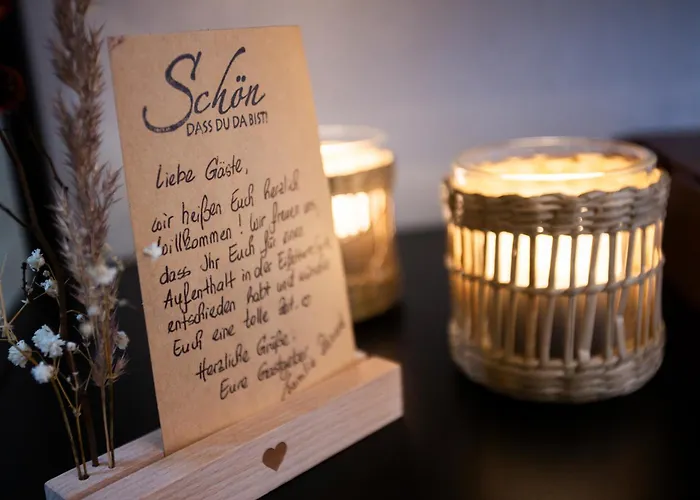 Schön
DASS DU DA BIST!
Liebe Gäste,
wir heißen Euch herzlich
willkommen! Wir freuen uns,
dass Ihr Euch für einen
Aufenthalt in der
entschieden habt und wünschen
Euch eine tolle Zeit. ♡
Herzliche Grüße,
Eure Gastgeber
Familie